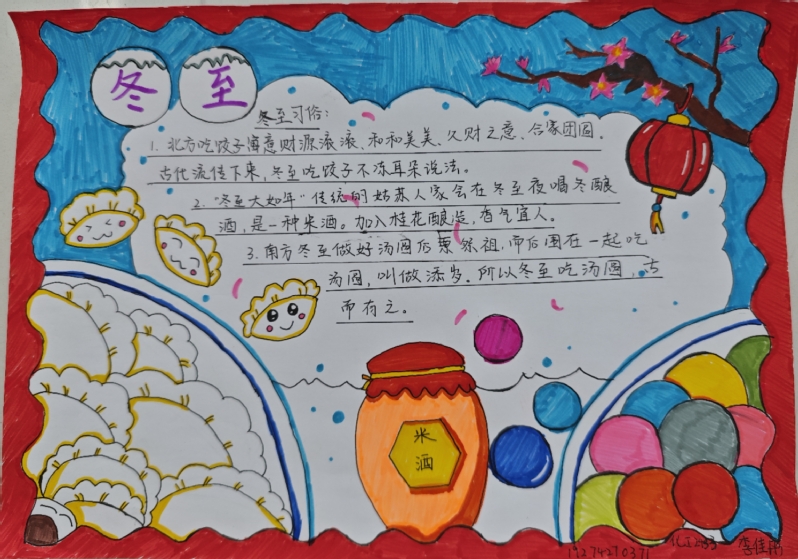 冬至
冬至习俗:
1. 北方吃饺子寓意财源滚滚、和和美美、久财之意、合家团圆。
古代流传下来,冬至吃饺子不冻耳朵说法。
2. "冬至大如年"传统的姑苏人家会在冬至夜喝冬酿
酒,是一种米酒。加入桂花酿造,香气宜人。
3. 南方冬至做好汤圆后 祭祖,而后围在一起吃
汤圆,叫做添岁。所以冬至吃汤圆,古
而有之。
米
酒
李佳